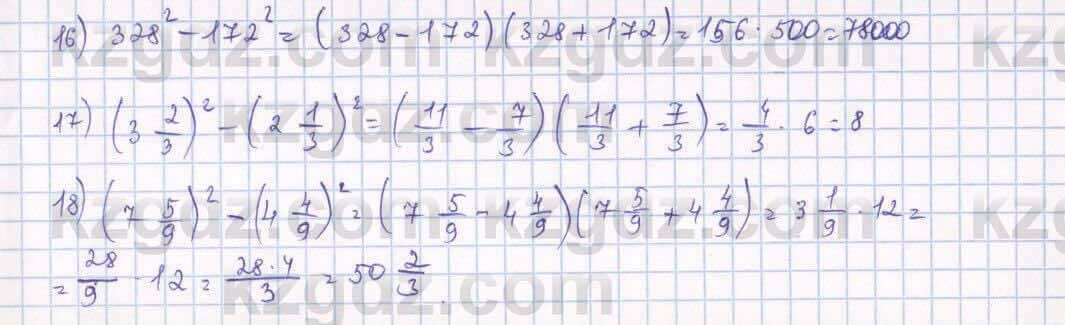 16) 328² - 172² = (328 - 172)(328 + 172) = 156 · 500 = 78000
17) (3 2/3)² - (2 1/3)² = (11/3 - 7/3)(11/3 + 7/3) = 4/3 · 6 = 8
18) (7 5/9)² - (4 4/9)² = (7 5/9 - 4 4/9)(7 5/9 + 4 4/9) = 3 1/9 · 12 =
= 28/9 · 12 = 28·4/3 = 50 2/3.
kzgdz.com